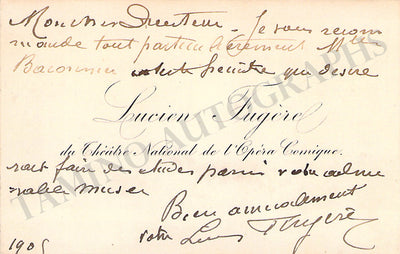 Mon cher Directeur – Je vous recom
mande tout particulièrement M
artiste peintre qui désire
Lucien Fugère
du Théâtre National de l'Opéra Comique.
faire des études parmi votre
musée
Bien amicalement
votre Lucien Fugère
1905
TAMINO AUTOGRAPHS